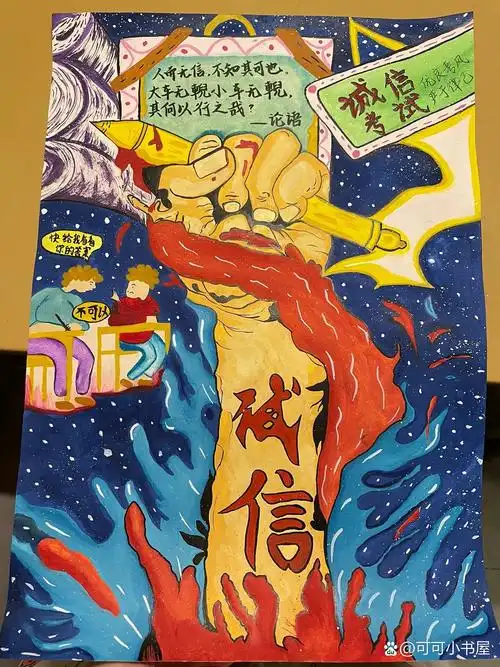 人而无信,不知其可也,
大车无輗小车无軏,
其何以行之哉?
—论语
诚信
考试
优良考风
严于律己
快给我看看
你的答案
不可以
诚
信
可可小书屋